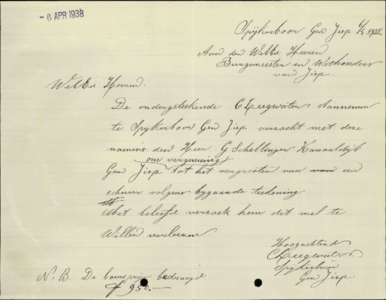 - 6 APR 1938
Spijkerboor Gem Jisp 6/4 1938
Aan den WelEd Heeren
Burgemeester en Wethouders
van Jisp
WelEd Heeren
De ondergeteekende C Kreegwater Aannemer
te Spijkerboor Gem Jisp verzoekt met deze
namens den Heer G Schellinger Kanaaldijk
om vergunning
Gem Jisp tot het vergrooten van een
schuur volgens bijgaande teekening
Met beleefd verzoek hem dit wel te
willen verleenen
Hoogachtend
C Kreegwater
Spijkerboor
Gem Jisp
N.B. De bouwsom bedraagd
f 950.-